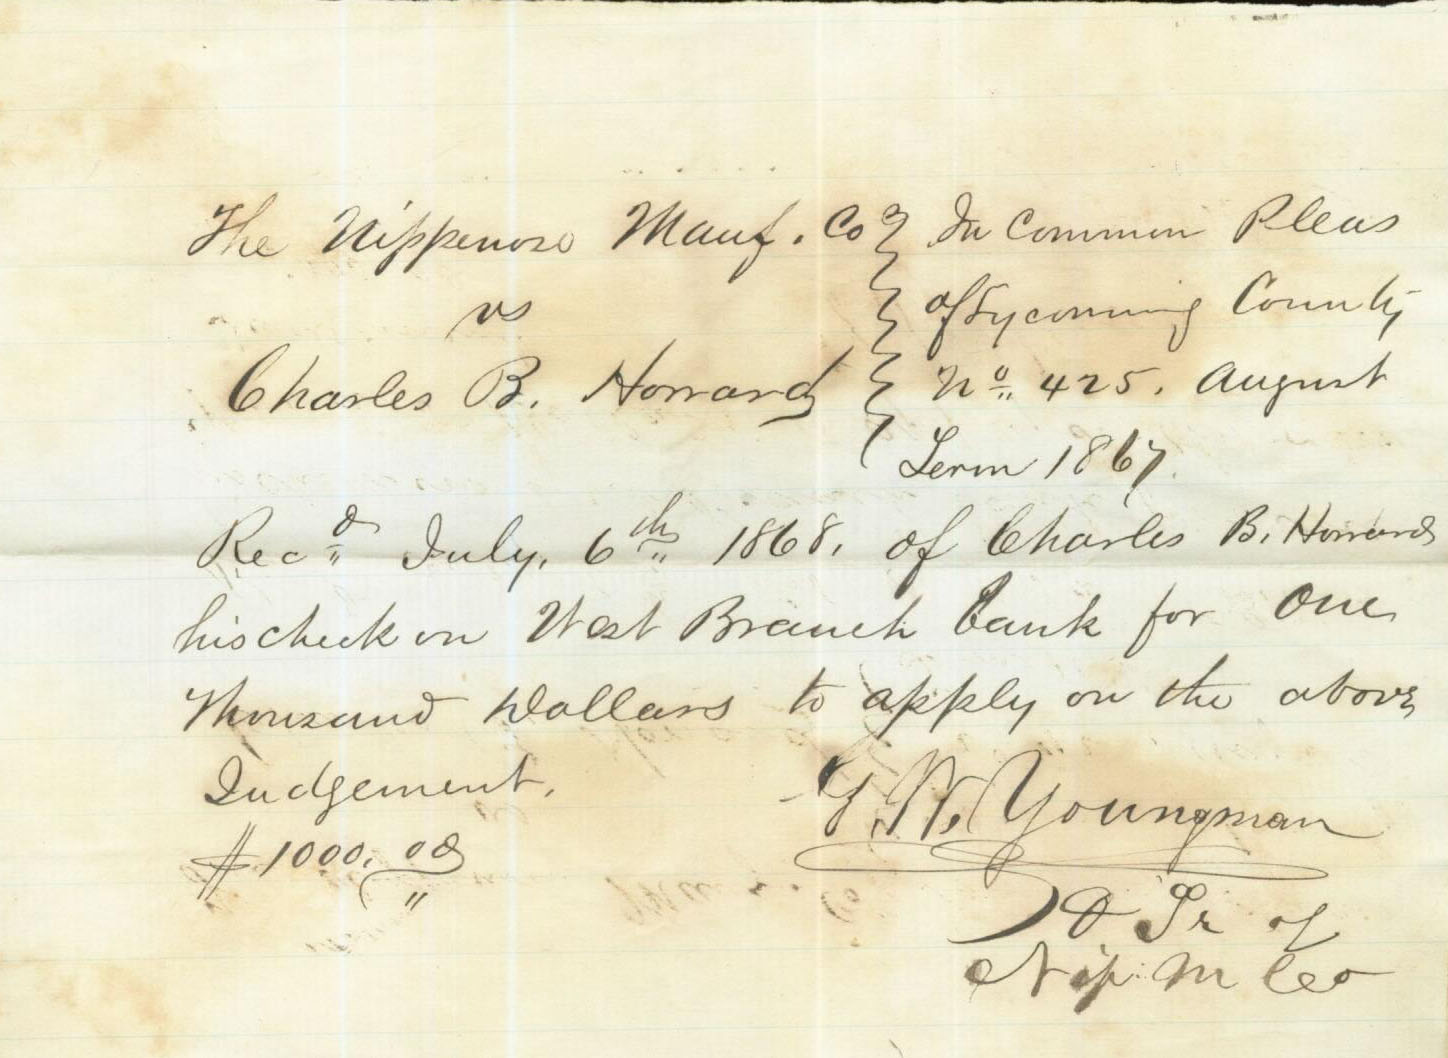 The Nippenose Manuf. Co } In Common Pleas
vs } of Lycoming County
Charles B. Howard } No. 425. August
Term 1867.
Recd July, 6th 1868. of Charles B. Howard
his check on West Branch bank for One
Thousand Dollars to apply on the above
Judgement.
G. W. Youngman
$1000.00
Tr of
Nip. M Co